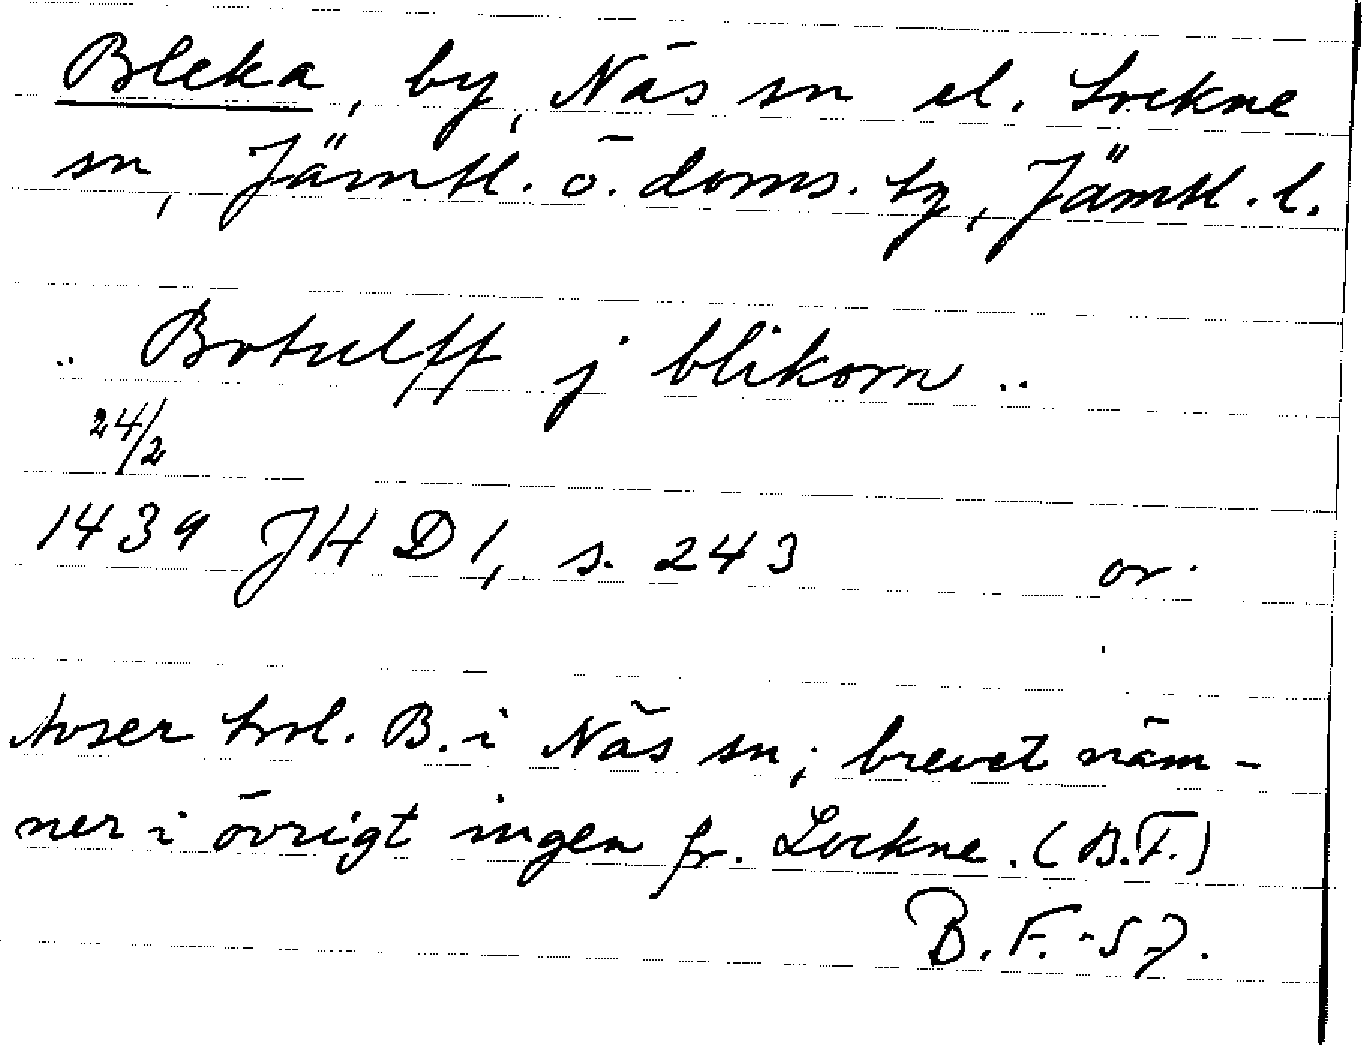 Bleka, by, Näs sn el. Lockne
sn, Jämtl. ö. doms. tg, Jämtl. l.
.. Botulff j blikom ..
24/2
1439 JHD 1, s. 243 or.
Avser trol. B. i Näs sn; brevet näm-
ner i övrigt ingen fr. Lockne. (B.F.)
B. F. -57.